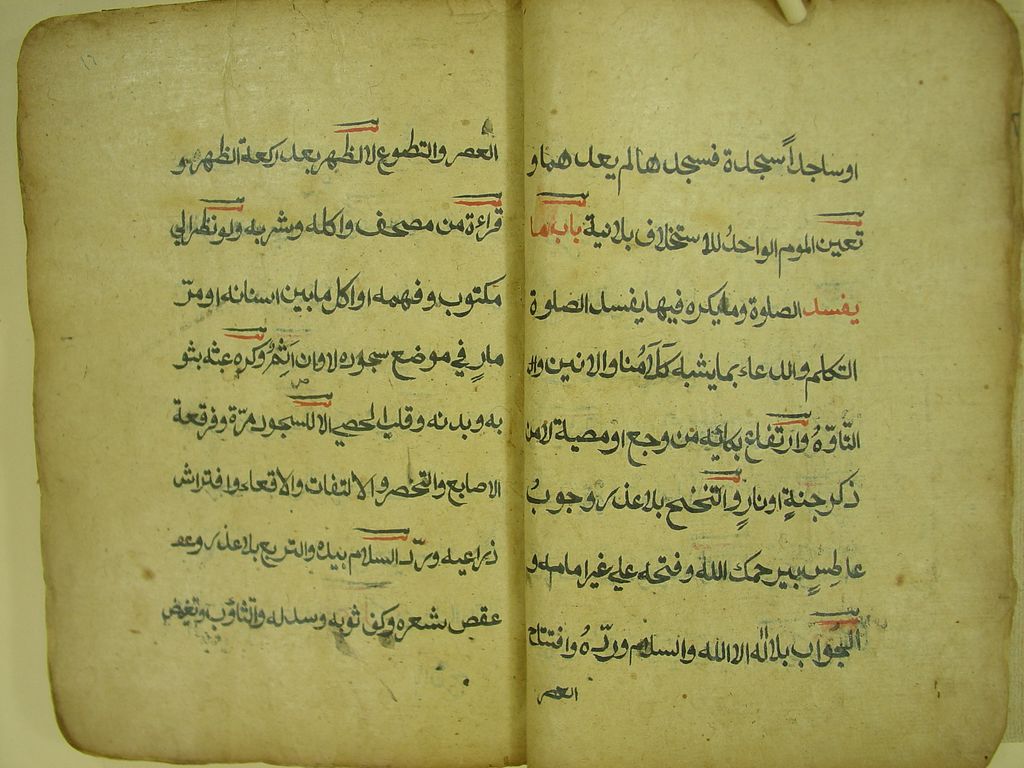 اوساجداً سجدة فسجدهالم يعدهما و
تعين الموم الواحدُ للاستخلاف بلانية باب ما
يفسد الصلوة وما يكره فيها يفسد الصلوة
التكلم والدعاء بمايشبه كَلَامُنا والانين وال
التّاوّهُ وارتفاع بكائِه من وجع اومصيبة لامن
ذكر جنةٍ او نارٍ والتنحنح بلاعذر وجوبُ
عاطِسٍ بيرحمك الله وفتحه علي غير امامه و
الجواب بلااله الاالله والسلام وردّهُ وافتتاح
العصر
١٦
العصر والتطوع لاالظهر بعد ركعة الظهر و
قراءة من مصحف واكله وشربه ولونظر الي
مكتوب وفهمه اواكل مابين اسنانه اومرّ
مارٍ في موضع سجوده لاوان اَثِمُ وكره عبثه بثو
به وبدنه وقلب الحصي الا للسجود مرّة وفرقعة
الاصابع والتخصر والالتفات والاقعاء وافتراش
ذراعيه وردّ السلام بيده والتربع بلاعذر وعقـ
عقص شعره وكف ثوبه وسدله والتثاؤب وتغميض